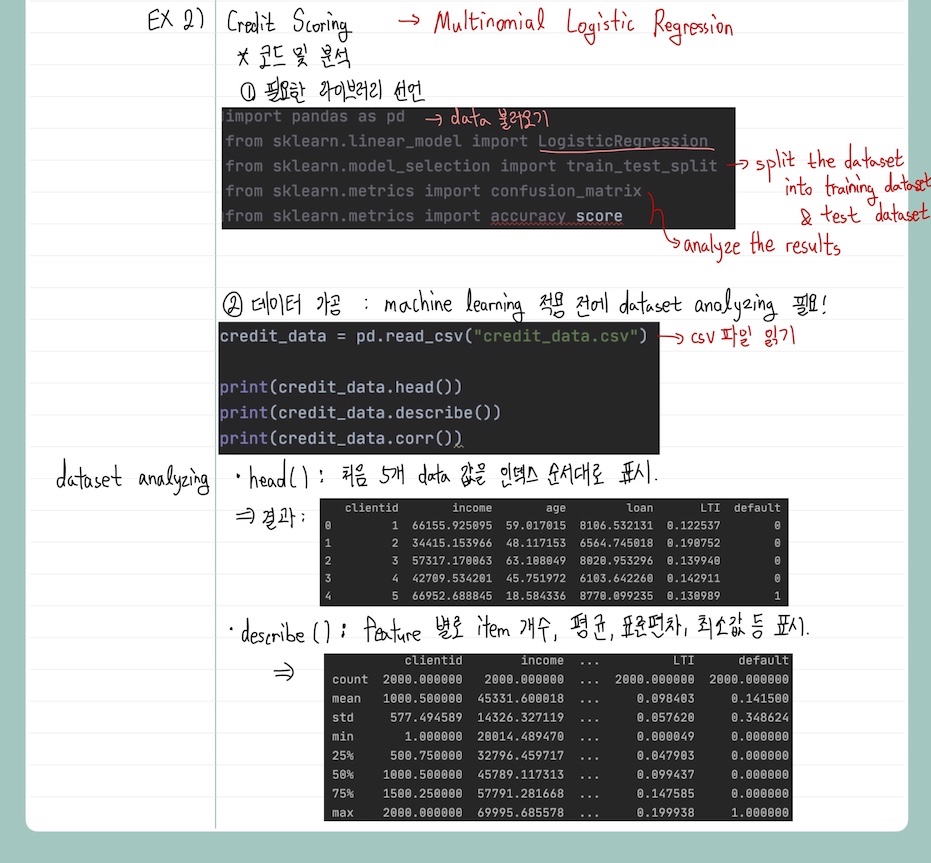 EX 2) Credit Scoring → Multinomial Logistic Regression
* 코드 및 분석
① 필요한 라이브러리 선언
import pandas as pd → data 불러오기
from sklearn.linear_model import LogisticRegression
from sklearn.model_selection import train_test_split → split the dataset
into training dataset
& test dataset
from sklearn.metrics import confusion_matrix
from sklearn.metrics import accuracy_score
→ analyze the results
② 데이터 가공 : machine learning 적용 전에 dataset analyzing 필요!
credit_data = pd.read_csv("credit_data.csv") → csv 파일 읽기
print(credit_data.head())
print(credit_data.describe())
print(credit_data.corr())
dataset analyzing · head() : 처음 5개 data 값을 인덱스 순서대로 표시.
⇒ 결과 :
clientid income age loan LTI default
0 1 66155.925095 59.017015 8106.532131 0.122537 0
1 2 34415.153966 48.117153 6564.745018 0.190752 0
2 3 57317.170063 63.108049 8020.953296 0.139940 0
3 4 42709.534201 45.751972 6103.642260 0.142911 0
4 5 66952.688845 18.584336 8770.099235 0.130989 1
· describe() : feature 별로 item 개수, 평균, 표준편차, 최소값 등 표시.
⇒
clientid income ... LTI default
count 2000.000000 2000.000000 ... 2000.000000 2000.000000
mean 1000.500000 45331.600018 ... 0.098403 0.141500
std 577.494589 14326.327119 ... 0.057620 0.348624
min 1.000000 20014.489470 ... 0.000049 0.000000
25% 500.750000 32796.459717 ... 0.047903 0.000000
50% 1000.500000 45789.117313 ... 0.099437 0.000000
75% 1500.250000 57791.281668 ... 0.147585 0.000000
max 2000.000000 69995.685578 ... 0.199938 1.000000